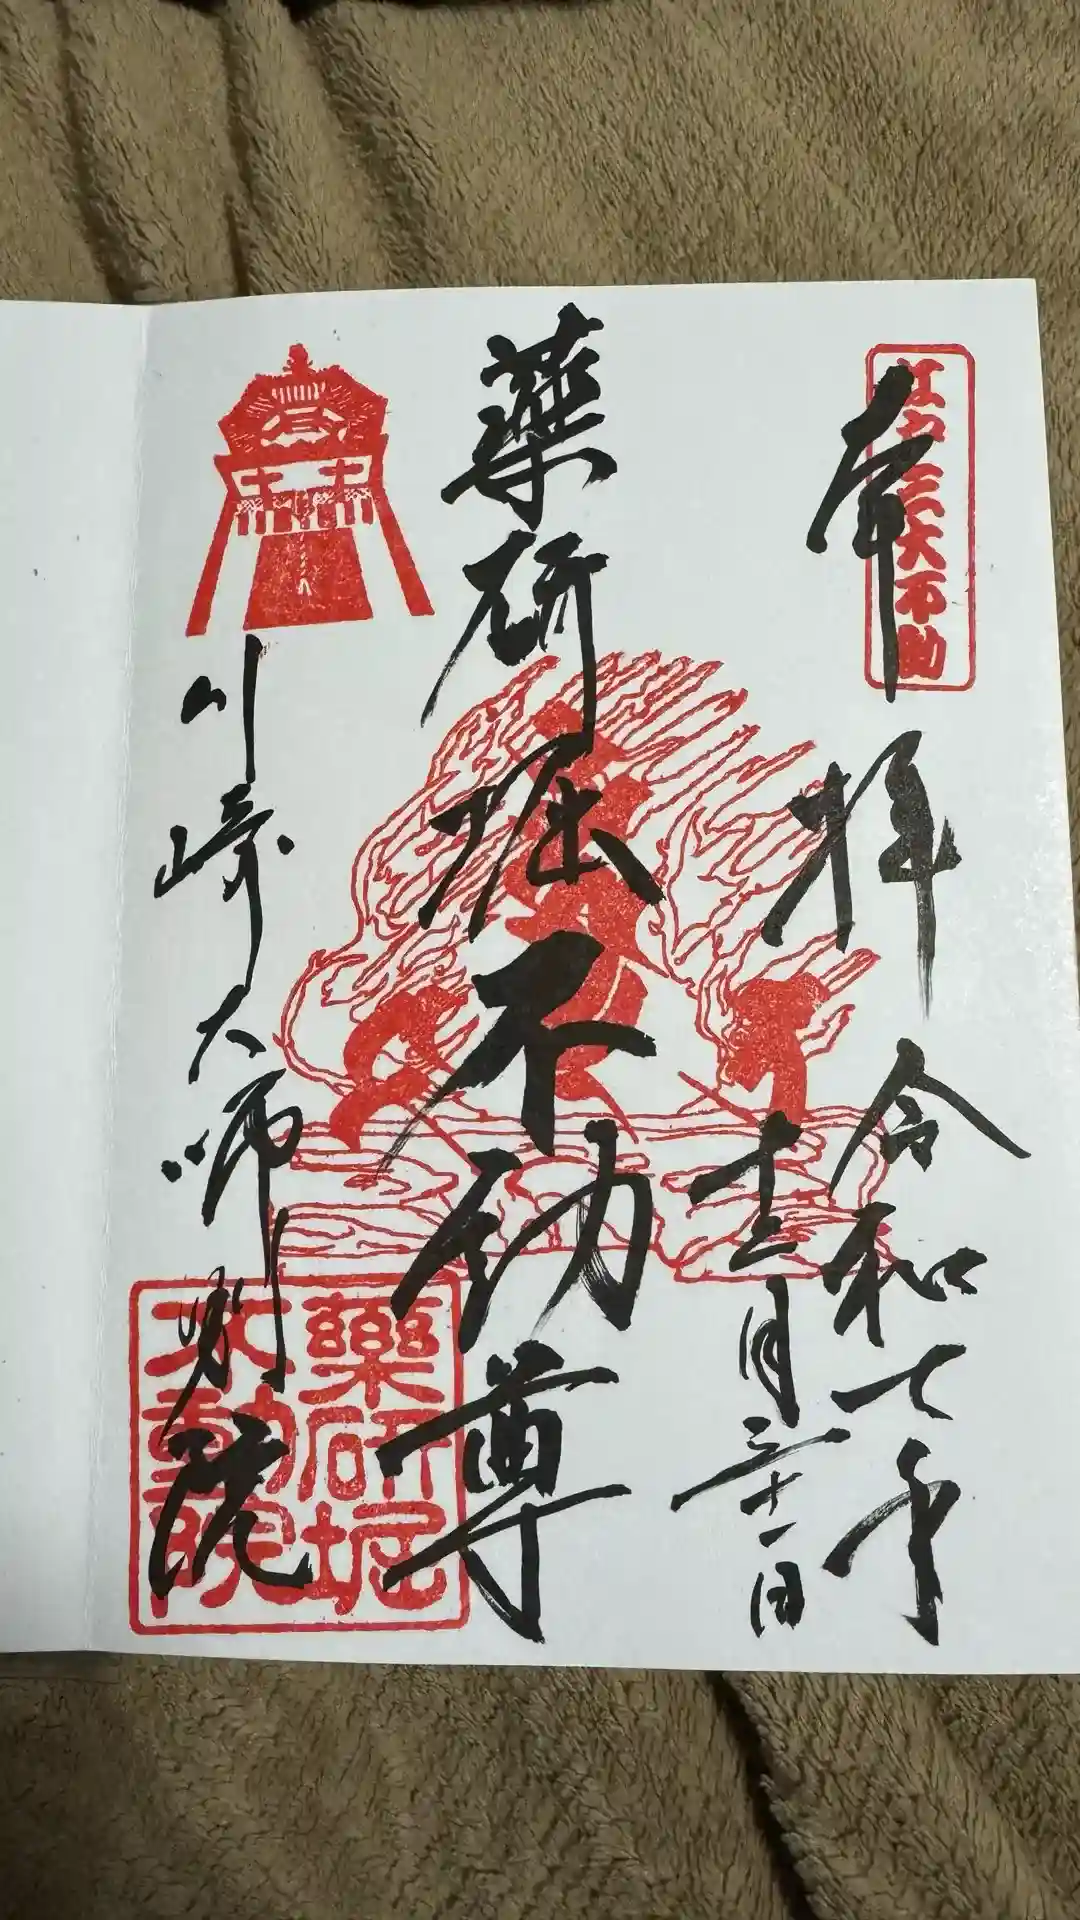 江戸三大不動
奉拝
令和七年
十二月三十一日
薬研堀不動尊
川崎大師別院
薬研堀
不動院